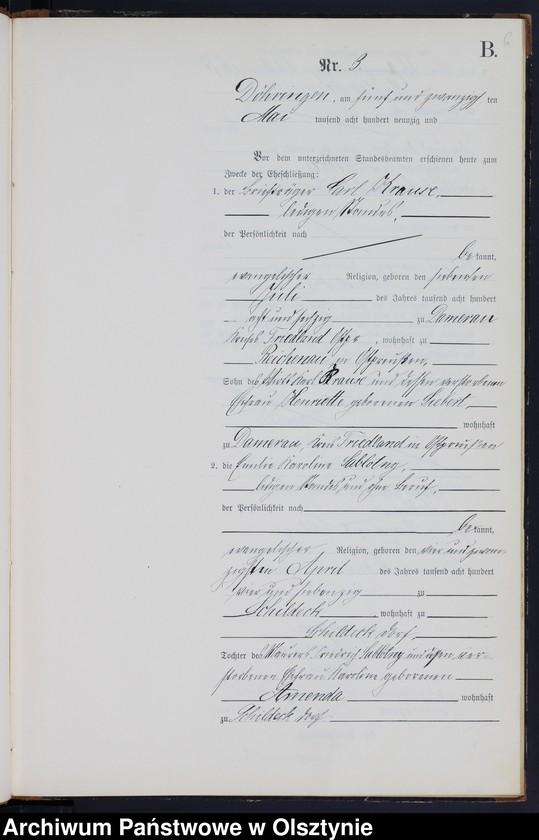 B.
Nr. 3.
Döhringen, am fünf und zwanzigsten
Mai tausend acht hundert neunzig und
Vor dem unterzeichneten Standesbeamten erschienen heute zum
Zwecke der Eheschließung:
1. der Briefträger Carl Krause,
ledigen Standes,
der Persönlichkeit nach
bekannt,
evangelischer Religion, geboren den siebenten
Juli des Jahres tausend acht hundert
acht und sechzig zu Damerau
Kreis Friedland Ostpr., wohnhaft zu
Reichenau in Ostpreußen,
Sohn des Karl Krause und dessen verstorbenen
Ehefrau Henriette geborenen Siebert,
wohnhaft
zu Damerau, Kreis Friedland in Ostpreußen
2. die Emilie Karoline
ledigen Standes, und ohne Beruf,
der Persönlichkeit nach
bekannt,
evangelischer Religion, geboren den vier und zwan-
zigsten April des Jahres tausend acht hundert
vier und siebenzig zu
Schildeck, wohnhaft zu
Schildeck Dorf
Tochter des Maurers Friedrich und dessen ver-
storbenen Ehefrau Karoline geborenen
Amenda wohnhaft
zu Schildeck Dorf
Archiwum Państwowe w Olsztynie